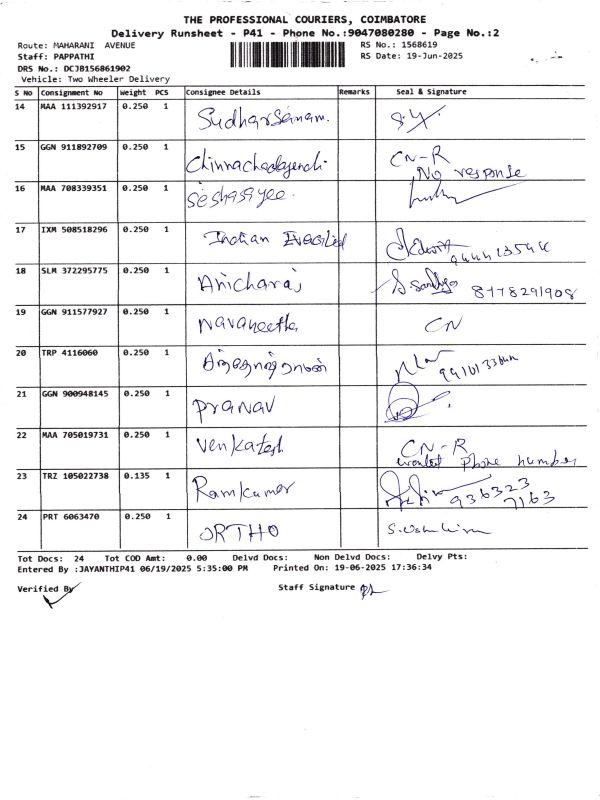 THE PROFESSIONAL COURIERS, COIMBATORE
Delivery Runsheet - P41 - Phone No.:9047080280 - Page No.:2
Route: MAHARANI AVENUE
RS No.: 1568619
Staff: PAPPATHI
RS Date: 19-Jun-2025
DRS No.: DCJB156861902
Vehicle: Two Wheeler Delivery
S NO Consignment No Weight PCS Consignee Details Remarks Seal & Signature
14 MAA 111392917 0.250 1 Sudharsanam.
15 GGN 911892709 0.250 1 CN-R
No response
16 MAA 708339351 0.250 1 Seshasayee.
17 IXM 508518296 0.250 1 Indian
18 SLM 372295775 0.250 1 8778291908
19 GGN 911577927 0.250 1 Navaneetha CN
20 TRP 4116060 0.250 1
21 GGN 900948145 0.250 1 Pranav
22 MAA 705019731 0.250 1 Venkatesh CN-R
phone number
23 TRZ 105022738 0.135 1 Ramkumar 936323
7163
24 PRT 6063470 0.250 1 ORTHO
Tot Docs: 24 Tot COD Amt: 0.00 Delvd Docs: Non Delvd Docs: Delvy Pts:
Entered By :JAYANTHIP41 06/19/2025 5:35:00 PM Printed On: 19-06-2025 17:36:34
Verified By Staff Signature